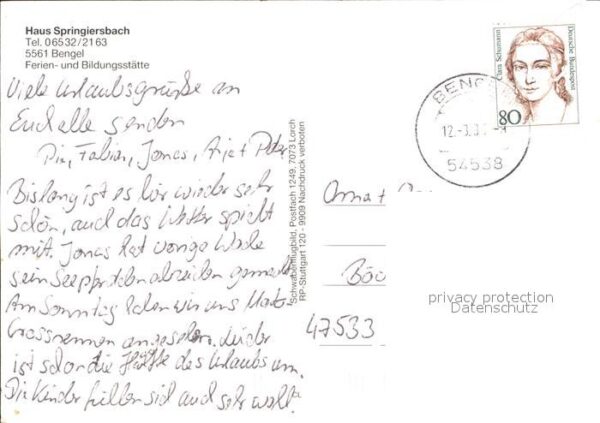 Haus Springiersbach
Tel. 06532/2163
5561 Bengel
Ferien- und Bildungsstätte
Viele Urlaubsgrüße an
Euch alle senden
Pia, Fabian, Jonas, + Peter
Bislang ist es hier wieder sehr
schön, auch das Wetter spielt
mit. Jonas hat vorige Woche
sein Seepferdchenabzeichen gemacht.
Am Sonntag haben wir uns Moto-
Crossrennen angesehen. Leider
ist schon die Hälfte des Urlaubs um.
Die Kinder fühlen sich auch sehr wohl.
Schwabenflugbild, Postfach 1249, 7073 Lorch
RP-Stuttgart 120 - 9909 Nachdruck verboten
Clara Schumann
Deutsche Bundespost
80
BENGEL
12.-3.
54538
Böc
47533
privacy protection
Datenschutz